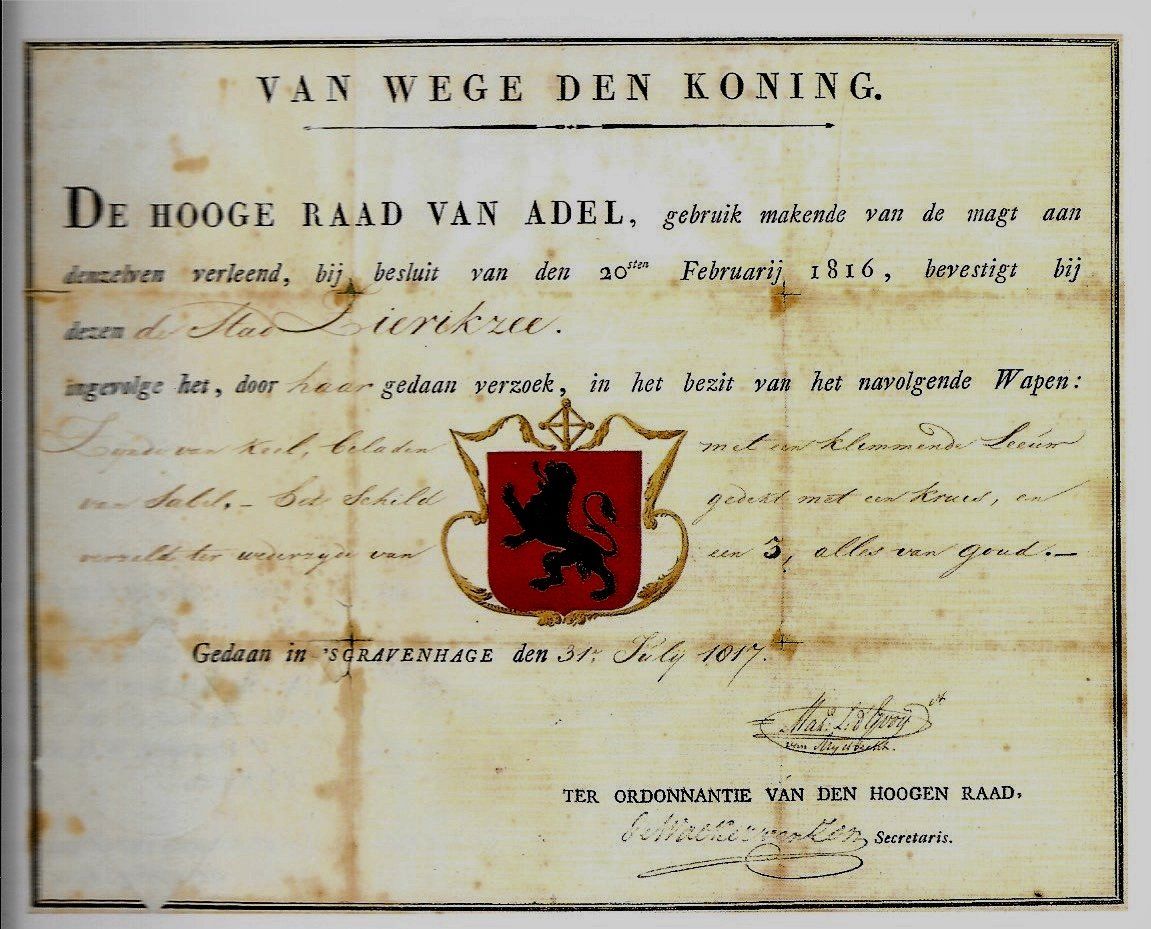 VAN WEGE DEN KONING.
DE HOOGE RAAD VAN ADEL, gebruik makende van de magt aan
denzelven verleend, bij besluit van den 20sten Februarij 1816, bevestigt bij
dezen de Stad Zierikzee.
ingevolge het, door haar gedaan verzoek, in het bezit van het navolgende Wapen:
Zynde van Keel, beladen met een klemmende Leeuw
van Sabel. – Het Schild gedekt met een kruis, en
verzeld ter wederzyde van een 3, alles van goud. –
Gedaan in 'SGRAVENHAGE den 31 July 1817.
TER ORDONNANTIE VAN DEN HOOGEN RAAD,
Secretaris.